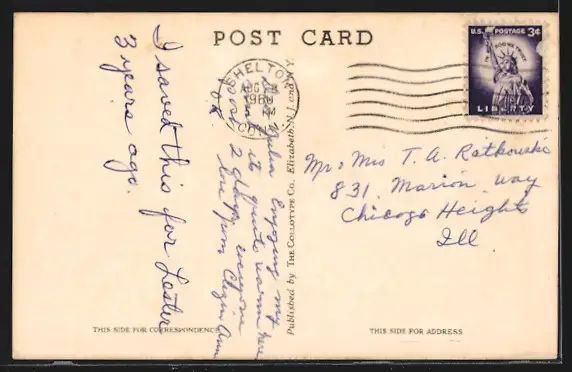 POST CARD
U.S. POSTAGE 3¢
IN GOD WE TRUST
LIBERTY
SHELTON
AUG
1960
CONN
I saved this for Lester
3 years ago.
Julia Enjoying my
its quite warm here
2 days, everyone
O.K. love from Ann
Mr & Mrs T. A. Ratkowski
831 Marion way
Chicago Heights
Ill
Published by THE COLLOTYPE CO. Elizabeth, N. J. and N. Y.
THIS SIDE FOR CORRESPONDENCE
THIS SIDE FOR ADDRESS